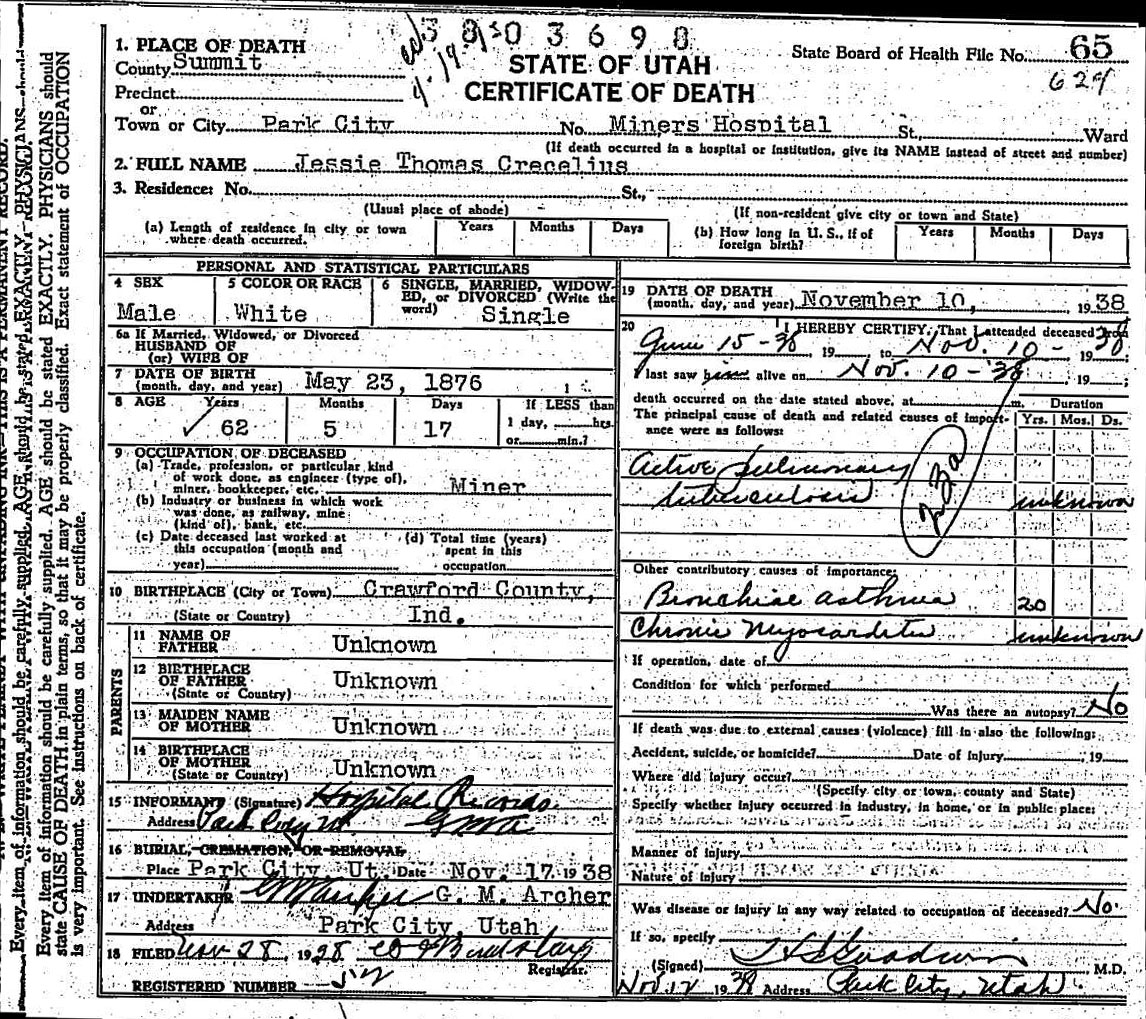 3803698
1. PLACE OF DEATH
County Summit
STATE OF UTAH
CERTIFICATE OF DEATH
State Board of Health File No. 65
629
Precinct
or
Town or City Park City No. Miners Hospital St., Ward
(If death occurred in a hospital or institution, give its NAME instead of street and number)
2. FULL NAME Jessie Thomas Crecelius
3. Residence: No. St.,
(Usual place of abode) (If non-resident give city or town and State)
(a) Length of residence in city or town where death occurred. Years Months Days
(b) How long in U. S., if of foreign birth? Years Months Days
PERSONAL AND STATISTICAL PARTICULARS
4 SEX Male
5 COLOR OR RACE White
6 SINGLE, MARRIED, WIDOWED, or DIVORCED (Write the word) Single
6a If Married, Widowed, or Divorced
HUSBAND OF
(or) WIFE OF
7 DATE OF BIRTH
(month, day, and year) May 23, 1876
8 AGE Years 62 Months 5 Days 17
If LESS than 1 day, hrs. or min.?
9 OCCUPATION OF DECEASED
(a) Trade, profession, or particular kind
of work done, as engineer (type of),
miner, bookkeeper, etc. Miner
(b) Industry or business in which work
was done, as railway, mine
(kind of), bank, etc.
(c) Date deceased last worked at
this occupation (month and
year)
(d) Total time (years)
spent in this
occupation
10 BIRTHPLACE (City or Town) Crawford County,
(State or Country) Ind.
PARENTS
11 NAME OF
FATHER Unknown
12 BIRTHPLACE
OF FATHER
(State or Country) Unknown
13 MAIDEN NAME
OF MOTHER Unknown
14 BIRTHPLACE
OF MOTHER
(State or Country) Unknown
15 INFORMANT (Signature) Hospital Records
Address Park City Ut. GMA
16 BURIAL, CREMATION, OR REMOVAL
Place Park City, Ut. Date Nov. 17 1938
17 UNDERTAKER G M Archer G. M. Archer
Address Park City, Utah
18 FILED Nov 28, 1938
Registrar.
REGISTERED NUMBER 52
19 DATE OF DEATH
(month, day, and year) November 10, 1938
20 I HEREBY CERTIFY, That I attended deceased from
June 15-38 19 to Nov. 10- 1938
I last saw him alive on Nov. 10-'38, 19 ;
death occurred on the date stated above, at m. Duration
The principal cause of death and related causes of importance were as follows: Yrs. Mos. Ds.
Active pulmonary
tuberculosis unknown
23a
Other contributory causes of importance:
Bronchial asthma 20
Chronic Myocarditis unknown
If operation, date of
Condition for which performed
Was there an autopsy? No
If death was due to external causes (violence) fill in also the following:
Accident, suicide, or homicide? Date of injury , 19
Where did injury occur?
(Specify city or town, county and State)
Specify whether injury occurred in industry, in home, or in public place:
Manner of injury
Nature of injury
Was disease or injury in any way related to occupation of deceased? No
If so, specify
(Signed) M.D.
Nov. 12 1938 Address Park City, Utah
Every item of information should be carefully supplied. AGE should be stated EXACTLY. PHYSICIANS should
state CAUSE OF DEATH in plain terms, so that it may be properly classified. Exact statement of OCCUPATION
is very important. See instructions on back of certificate.